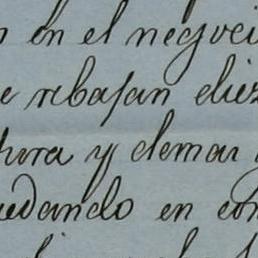 en el negocio
rebajan diez
tura y demas
uedando en con